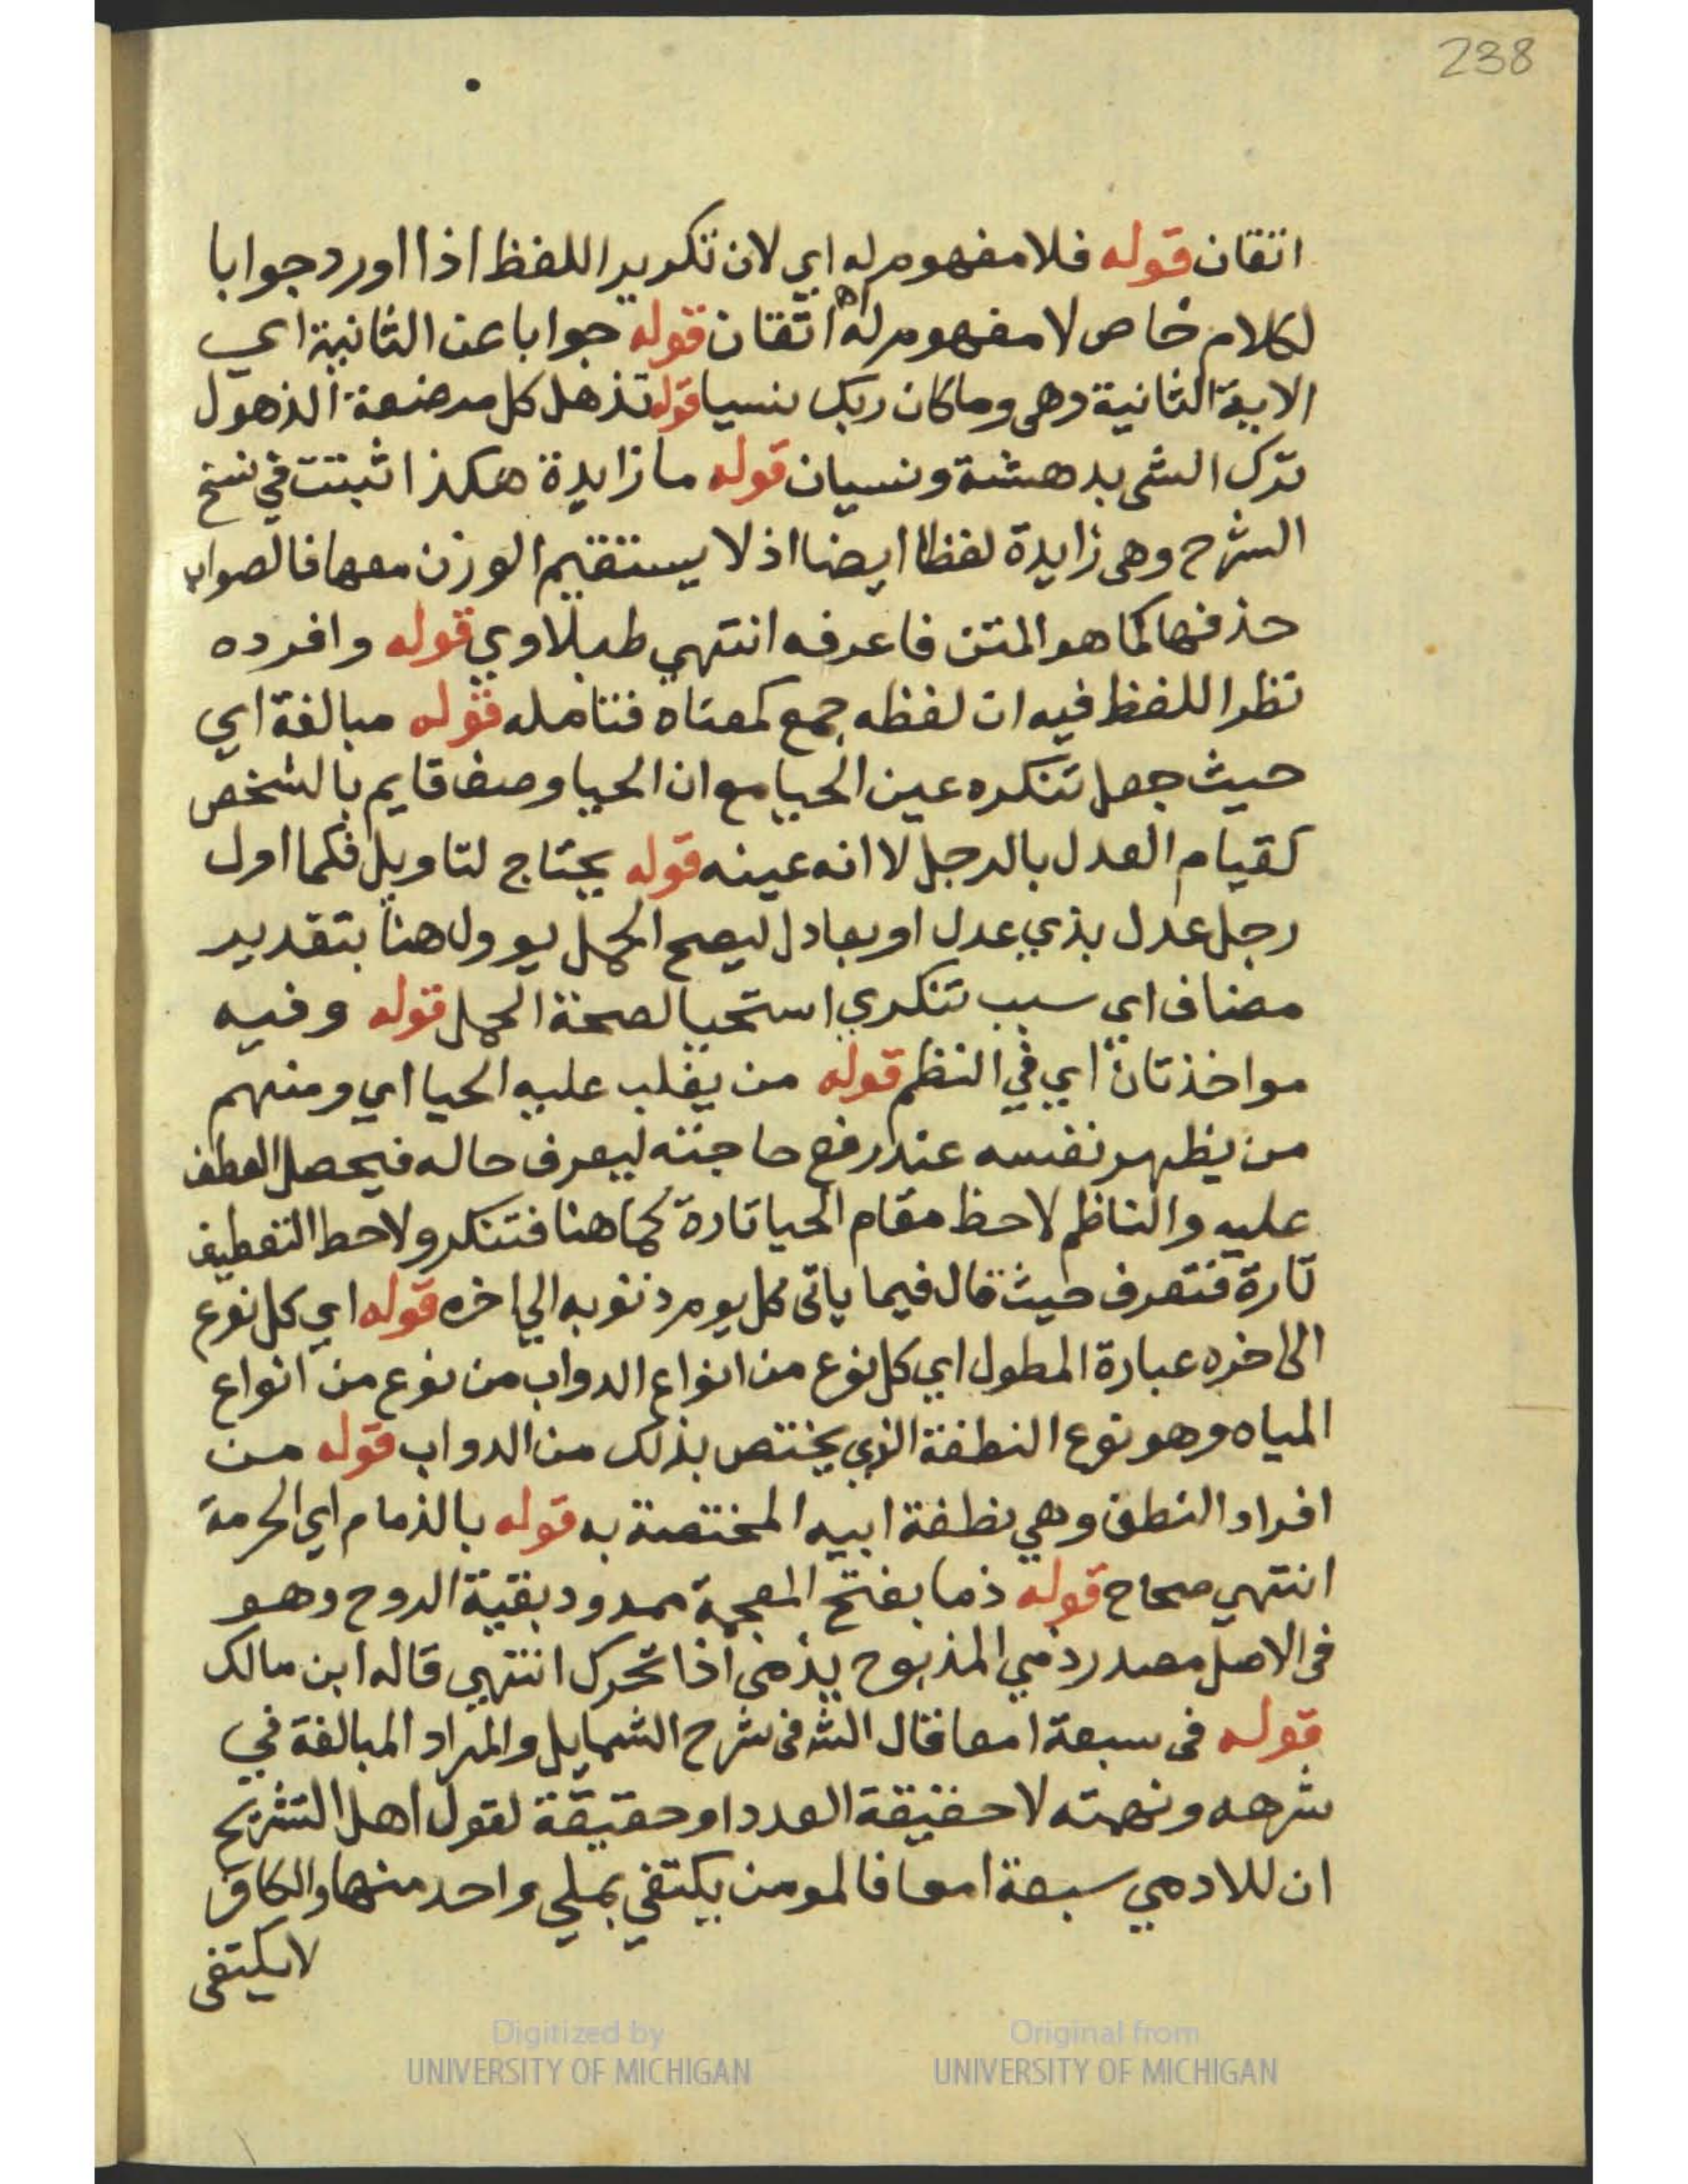 238
اتقان قوله فلا مفهوم له اي لان تكرير اللفظ اذا اورد جوابا
لكلام خاص لا مفهوم له اه اتقان قوله جوابا عن الثانية اي
الاية الثانية وهى وما كان ربك نسيا قوله تذهل كل مرضعة الذهول
ترك الشى بدهشة ونسيان قوله ما زايدة هكذا اثبتت في نسخ
الشرح وهى زايدة لفظا ايضا اذ لا يستقيم الوزن معها فالصواب
حذفها كما هو المتن فاعرفه انتهي طبلاوي قوله وافرده
نظرا للفظ فيه ان لفظه جمع كمعناه فتامله قوله مبالغة اي
حيث جعل تنكره عين الحيا مع ان الحيا وصف قايم بالشخص
كقيام العدل بالرجل لا انه عينه قوله يحتاج لتاويل فكما اول
رجل عدل بذي عدل او بعادل ليصح الحمل يوول هنا بتقدير
مضاف اي سبب تنكري استحيا لصحة الحمل قوله وفيه
مواخذتان اي في النظم قوله من يغلب عليه الحيا اي ومنهم
من يظهر نفسه عند رفع حاجته ليعرف حاله فيحصل العطف
عليه والناظم لاحظ مقام الحيا تارة كما هنا فتنكر ولاحط التعطيف
تارة فتعرف حيث قال فيما ياتى كل يوم ذنوبه الي اخره قوله اي كل نوع
الى اخره عبارة المطول اي كل نوع من انواع الدواب من نوع من انواع
المياه وهو نوع النطفة الذي يختص بذلك من الدواب قوله من
افراد النطف وهي نطفة ابيه المختصة به قوله بالذمام اي الحرمة
انتهي صحاح قوله ذما بفتح المعجمة ممدود بقية الروح وهو
فى الاصل مصدر ذمي المذبوح يذمى اذا تحرك انتهي قاله ابن مالك
قوله فى سبعة امعا قال الشه فى شرح الشمايل والمراد المبالغة في
شرهه ونهمته لا حقيقة العدد او حقيقة لقول اهل التشريح
ان للادمي سبعة امعا فالمومن يكتفي بملي واحد منها والكافر
لا يكتفى
Digitized by
UNIVERSITY OF MICHIGAN
Original from
UNIVERSITY OF MICHIGAN